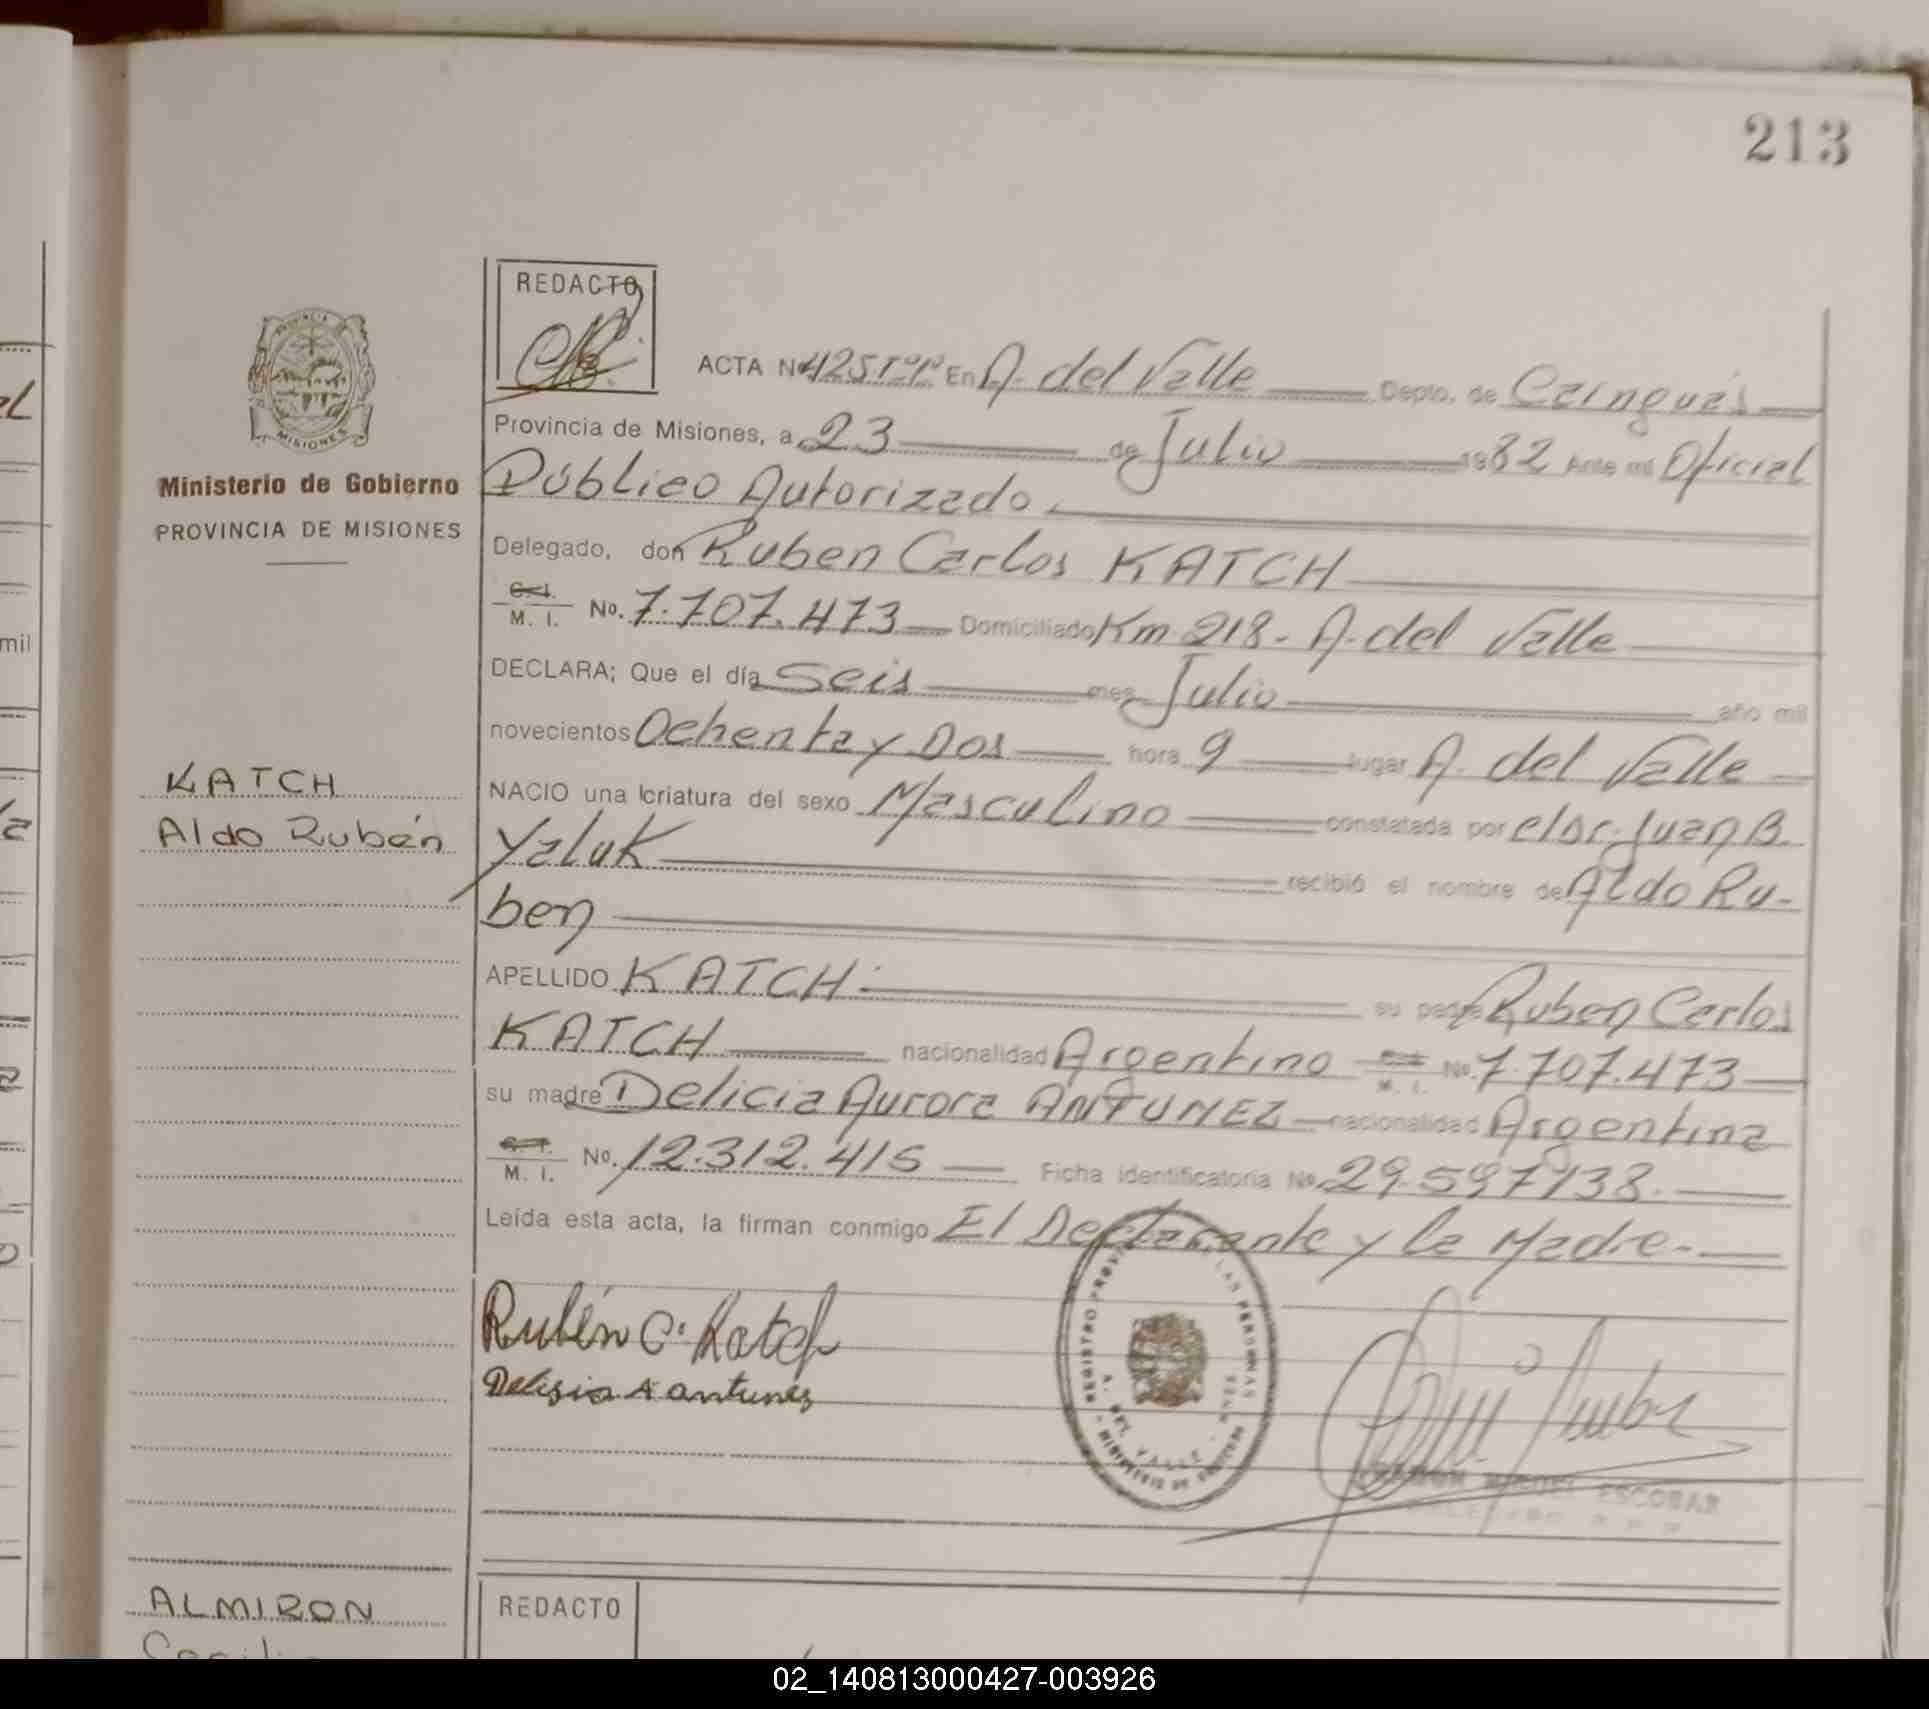 213
REDACTO
ACTA Nº 425 Tº 1º En A. del Valle Depto. de Cainguás
Provincia de Misiones, a 23 de Julio 1982 Ante mi Oficial
Público Autorizado
Delegado, don Ruben Carlos KATCH
C.I.
M. I. No. 7.707.473 Domiciliado Km 218 - A. del Valle
DECLARA; Que el día Seis mes Julio año mil
novecientos Ochenta y Dos hora 9 lugar A. del Valle
NACIO una criatura del sexo Masculino constatada por el Dr. Juan B.
Yaluk recibió el nombre de Aldo Ru-
ben
APELLIDO KATCH su padre Ruben Carlos
KATCH nacionalidad Argentino C.I. M. I. No. 7.707.473
su madre Delicia Aurora ANTUNEZ nacionalidad Argentina
C.I.
M. I. No. 12.312.415 Ficha Identificatoria No. 29.597.138.
Leída esta acta, la firman conmigo El Declarante y la Madre.-
Rubén C. Katch
Delisia A antunez
REGISTRO PROVINCIAL DE LAS PERSONAS
A. DEL VALLE - MNES.
MINISTERIO DE GOBIERNO
RAMON MIGUEL ESCOBAR
DELEGADO R P P
PROVINCIA DE
MISIONES
Ministerio de Gobierno
PROVINCIA DE MISIONES
KATCH
Aldo Rubén
ALMIRON
REDACTO
mil
02_140813000427-003926